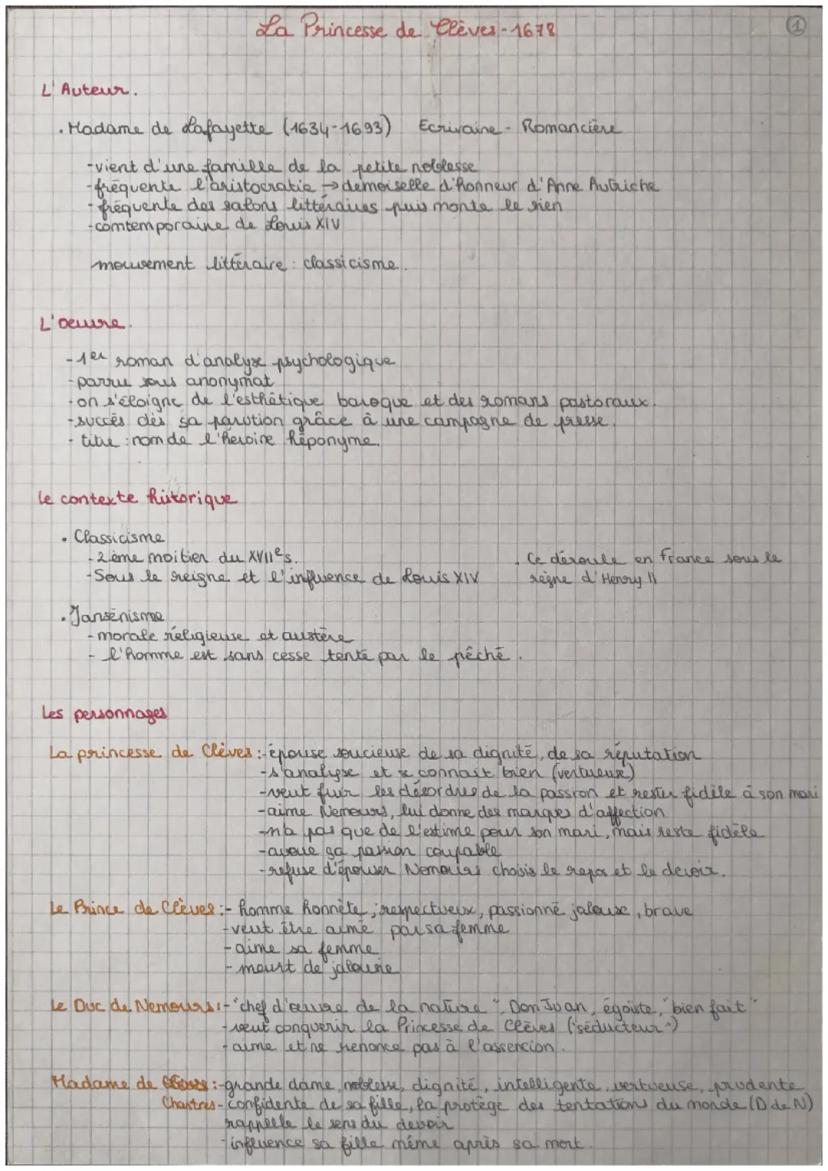 La Princesse de Clèves - 1678
1
L'Auteur.
. Madame de Lafayette (1634-1693) Ecrivaine - Romancière
- vient d'une famille de la petite noblesse
- fréquente l'aristocratie → demoiselle d'honneur d'Anne Autriche
- fréquente des salons littéraires puis monte le sien
- comtemporaine de Louis XIV
mouvement littéraire : classicisme.
L'oeuvre.
- 1er roman d'analyse psychologique
- parru sous anonymat
- on s'éloigne de l'esthétique baroque et des romans pastoraux.
- succès dès sa parution grâce à une campagne de presse.
- titre : nom de l'héroïne héponyme.
le contexte historique
. Classicisme
- 2ème moitier du XVIIes.
- Sous le reigne et l'influence de Louis XIV
. Ce déroule en france sous le
règne d'Henry II
. Jansénisme
- morale religieuse et austère
- l'homme est sans cesse tenté par le pêché.
Les personnages
La princesse de Clèves : - épouse soucieuse de sa dignité, de sa réputation
- s'analyse et se connait bien (vertueux)
- veut fuir les désordres de la passion et rester fidèle à son mari
- aime Nemours, lui donne des marques d'affection
- n'a pas que de l'estime pour son mari, mais reste fidèle
- avoue sa passion coupable
- refuse d'épouser Nemours choisis le repos et le devoir.
Le Prince de Clèves : - homme honnête, respectueux, passionné jalouse, brave
- veut être aimé par sa femme
- aime sa femme
- meurt de jalousie
Le Duc de Nemours : - "chef d'œuvre de la nature", Don Juan, égoïste, "bien fait"
- veut conquérir la Princesse de Clèves ("séducteur")
- aime et ne renonce pas à l'assencion.
Madame de : - grande dame, noblesse, dignité, intelligente, vertueuse, prudente
Chartres - confidente de sa fille, la protège des tentations du monde (D de N)
rappelle le sens du devoir
- influence sa fille même après sa mort.